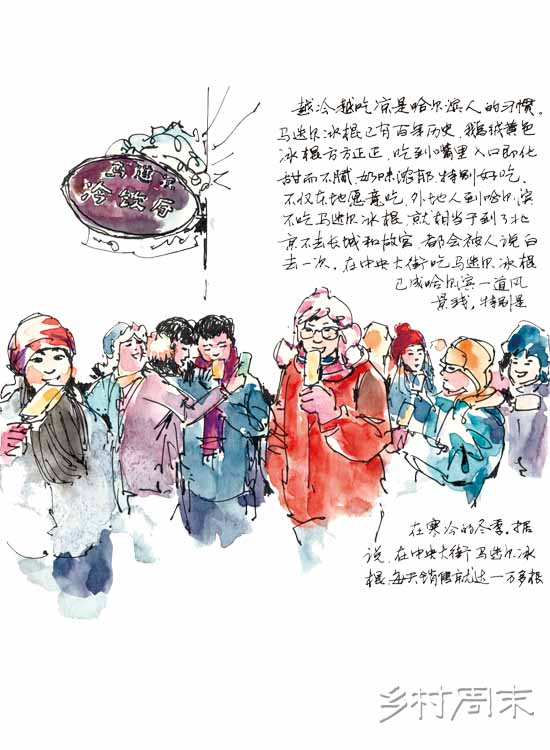 马迭尔
冷饮厅
越冷越吃凉是哈尔滨人的习惯。
马迭尔冰棍已有百年历史,鹅绒黄色
冰棍方方正正,吃到嘴里入口即化
甜而不腻,奶味浓郁,特别好吃。
不仅本地愿意吃,外地人到哈尔滨
不吃马迭尔冰棍,就相当于到了北
京不去长城和故宫,都会被人说白
去一次。在中央大街吃马迭尔冰棍
已成哈尔滨一道风
景线,特别是
在寒冷的冬季。据
说,在中央大街马迭尔冰
棍,每天销售就达一万多根
乡村周末